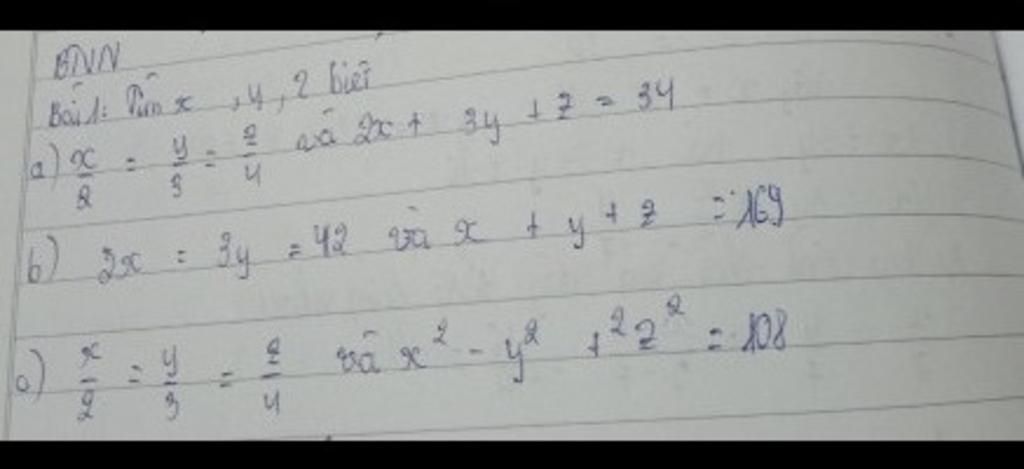 BTVN
Bài 1: Tìm x, y, z biết
a) x/2 = y/3 = z/4 và 2x + 3y + z = 34
b) 2x = 3y = 4z và x + y + z = 169
c) x/2 = y/3 = z/4 và x² - y² + 2z² = 108